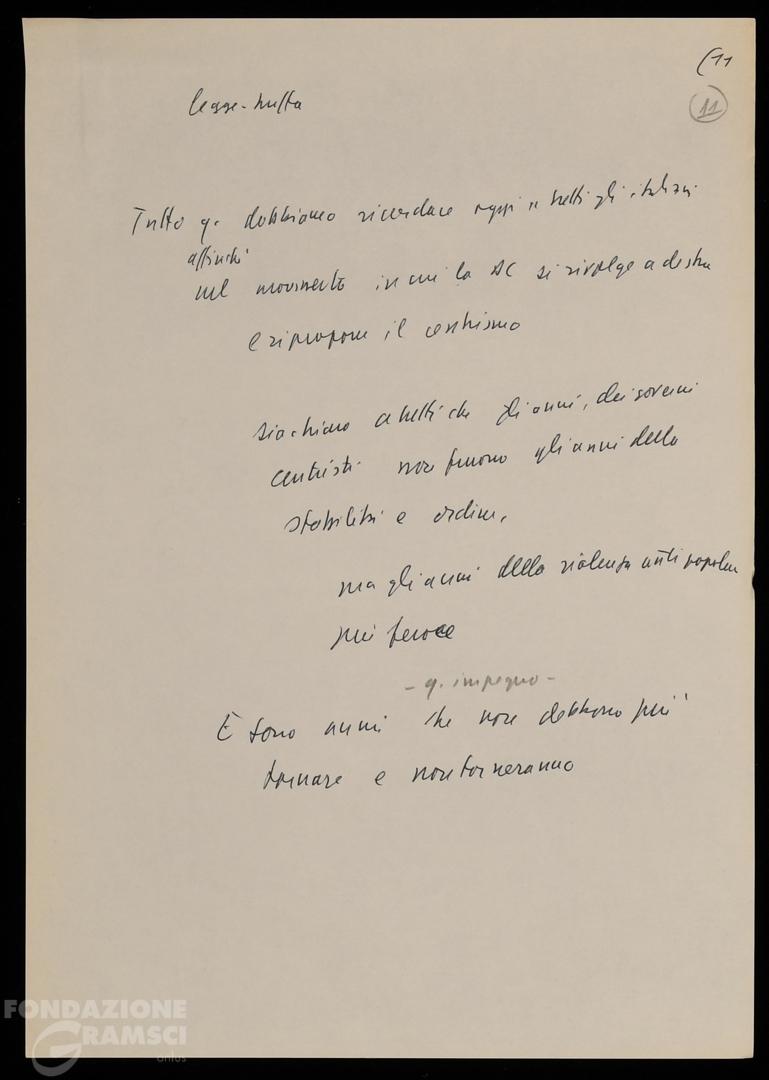 (11
11
legge-truffa
Tutto q. dobbiamo ricordare oggi a tutti gli italiani
affinché
nel momento in cui la DC si rivolge a destra
e ripropone il centrismo
sia chiaro a tutti che gli anni, dei governi
centristi non furono gli anni della
stabilità e ordine,
ma gli anni della violenza antipopolare
più feroce
- q. impegno -
E sono anni che non debbono più
tornare e non torneranno
FONDAZIONE
GRAMSCI
onlus